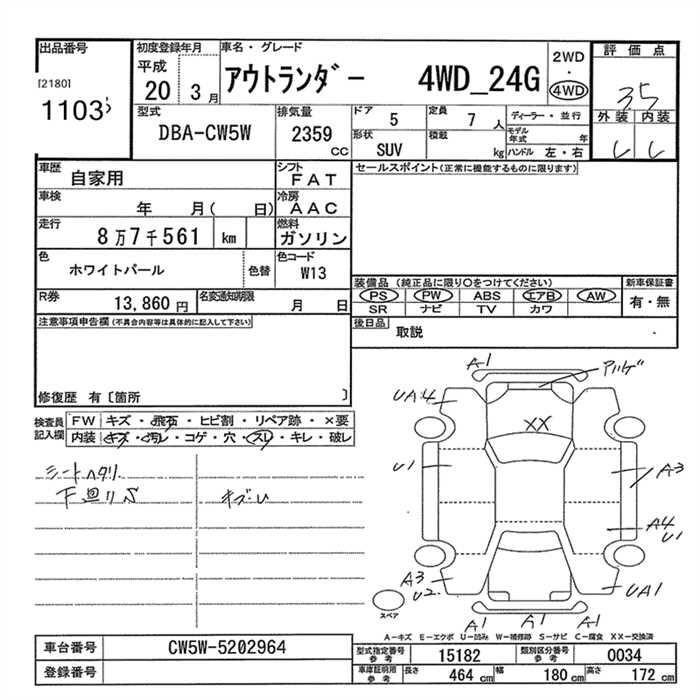 出品番号
[2180]
1103
初度登録年月
平成
20 3月
車名・グレード
アウトランダー 4WD_24G
2WD
・
4WD
評価点
3.5
外装 内装
型式
DBA-CW5W
排気量
2359
CC
ドア
5
定員
7 人
形状
SUV
積載
kg
ディーラー・並行
モデル年式 年
ハンドル 左・右
車歴
自家用
シフト
FAT
車検
年 月( 日)
冷房
AAC
走行
8万7千561 km
燃料
ガソリン
色
ホワイトパール
色替
色コード
W13
R券
13,860 円
名変通知期限
月 日
セールスポイント(正常に機能するものに限ります)
装備品 (純正品に限り○をつけてください)
PS PW ABS エアB AW
SR ナビ TV カワ
新車保証書
有・無
後日品
取説
注意事項申告欄(不具合内容等は具体的に記入して下さい)
修復歴 有〔箇所 〕
検査員記入欄
FW キズ・飛石・ヒビ割・リペア跡・×要
内装 キズ・汚レ・コゲ・穴・スレ・キレ・破レ
シートヘタリ
下廻りS
A1
UA4
XX
U1
A3
A4
U1
A3
U2
UA1
A1 A1 A1
スペア
A-キズ E-エクボ U-凹み W-補修跡 S-サビ C-腐食 XX-交換済
車台番号
CW5W-5202964
登録番号
型式指定番号
参考
15182
類別区分番号
参考
0034
車庫証明用
参考
長さ
464 cm
幅
180 cm
高さ
172 cm